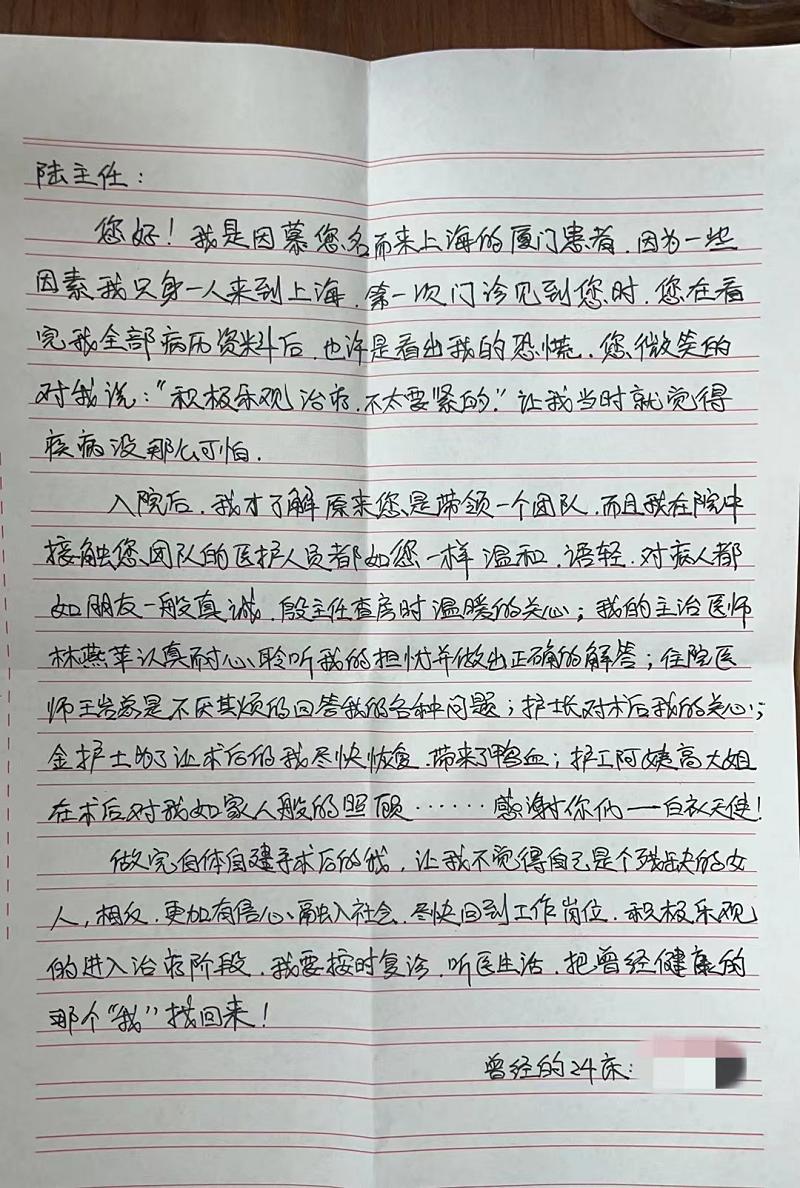 陆主任：
您好！我是因慕您名而来上海的厦门患者，因为一些
因素我只身一人来到上海，第一次门诊见到您时，您在看
完我全部病历资料后，也许是看出我的恐慌，您微笑的
对我说：“积极乐观治疗，不太要紧的。”让我当时就觉得
疾病没那么可怕．
入院后，我才了解原来您是带领一个团队，而且我在院中
接触您团队的医护人员都如您一样温和、语轻，对病人都
如朋友一般真诚，殷主任查房时温暖的关心；我的主治医师
林燕苹认真耐心聆听我的担忧并做出正确的解答；住院医
师王岩总是不厌其烦的回答我的各种问题；护士长对术后我的关心；
金护士为了让术后的我尽快恢复，带来了鸭血；护工阿姨高大姐
在术后对我如家人般的照顾……感谢你们——白衣天使！
做完自体自建手术后的我，让我不觉得自己是个残缺的女
人，相反，更加有信心融入社会，尽快回到工作岗位，积极乐观
的进入治疗阶段，我要按时复诊，听医生话，把曾经健康的
那个“我”找回来！
曾经的24床：